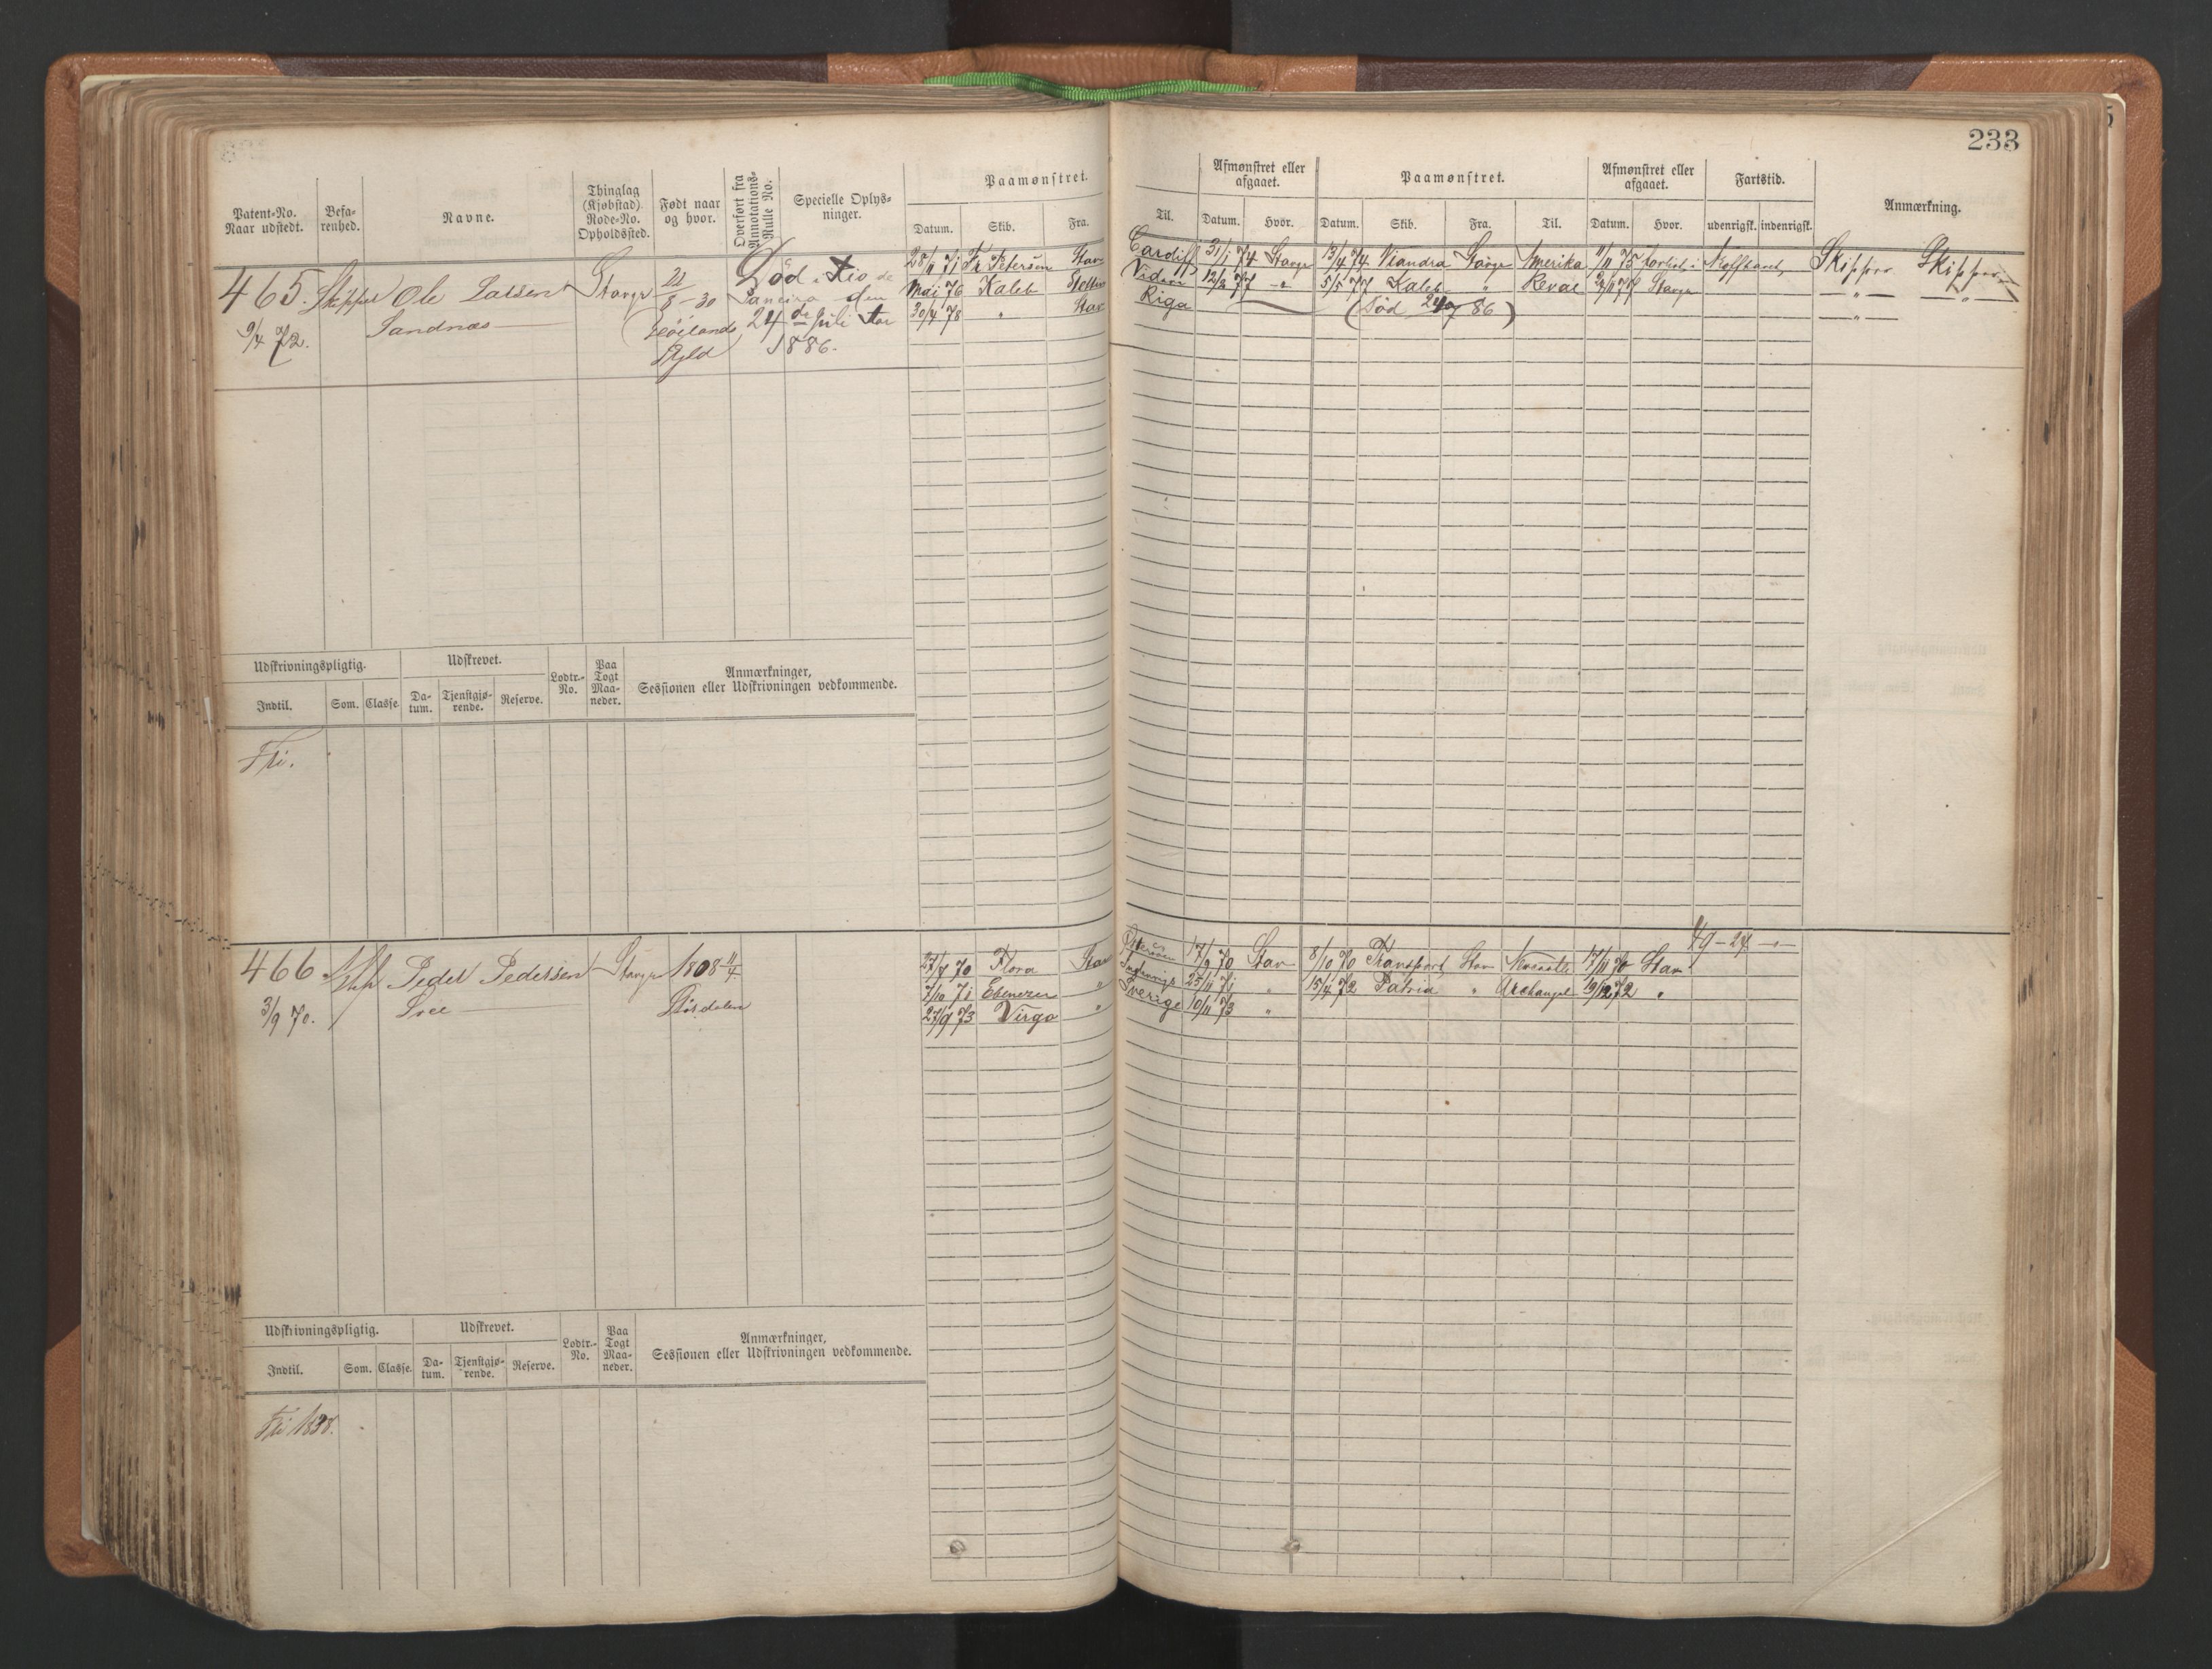 233
Patent-No. Naar udstedt. Befa-renhed. Navne. Thinglag (Kjøbstad) Rode-No. Opholdssted. Født naar og hvor. Overført fra Annotations-Rulle No. Specielle Oplys-ninger. Paamønstret. Datum. Skib. Fra. Til. Afmønstret eller afgaaet. Datum. Hvor. Paamønstret. Datum. Skib. Fra. Til. Afmønstret eller afgaaet. Datum. Hvor. Fartstid. udenrigsk. indenrigsk. Anmærkning.
465. Skipper Ole Larsen Stavgr 22/8-30 Død i Rio de 28/11 71 Fr Petersen Stav Cardiff 31/1 74 Stavgr 13/4 74 Viandra Stavgr Amerika 1/11 75 Skipper Skipper
9/4 72. Sandnæs Høilands Janeiro den Mai 76 Kaleb 12/2 77 -"- 5/5 77 Kaleb " Reval Stavgr -"- -"-
Gjeld 24de Juli 30/4 78 " Stav Riga (Død 24/7 86) -"-
1886.
Udskrivningspligtig. Udskrevet. Lodtr.-No. Paa Togt Maa-neder. Anmærkninger, Sessionen eller Udskrivningen vedkommende.
Indtil. Som. Classe. Da-tum. Tjenstgjø-rende. Reserve.
Fri.
49-24
466 Peder Pedersen Stavgr 1808 11/4 27/8 70 Flora Stav 17/9 70 Stav 8/10 70 Transport Stav Newcastle 17/11 70 Stav
3/9 70. Stördalen 7/10 71 Ebenezer " Indenrigs 25/11 71 " 15/4 72 Patria " Archangel 19/12 72 "
27/9 73 Virgo " Sverige 10/11 73 "
Udskrivningspligtig. Udskrevet. Lodtr.-No. Paa Togt Maa-neder. Anmærkninger, Sessionen eller Udskrivningen vedkommende.
Indtil. Som. Classe. Da-tum. Tjenstgjø-rende. Reserve.
Fri 1838.